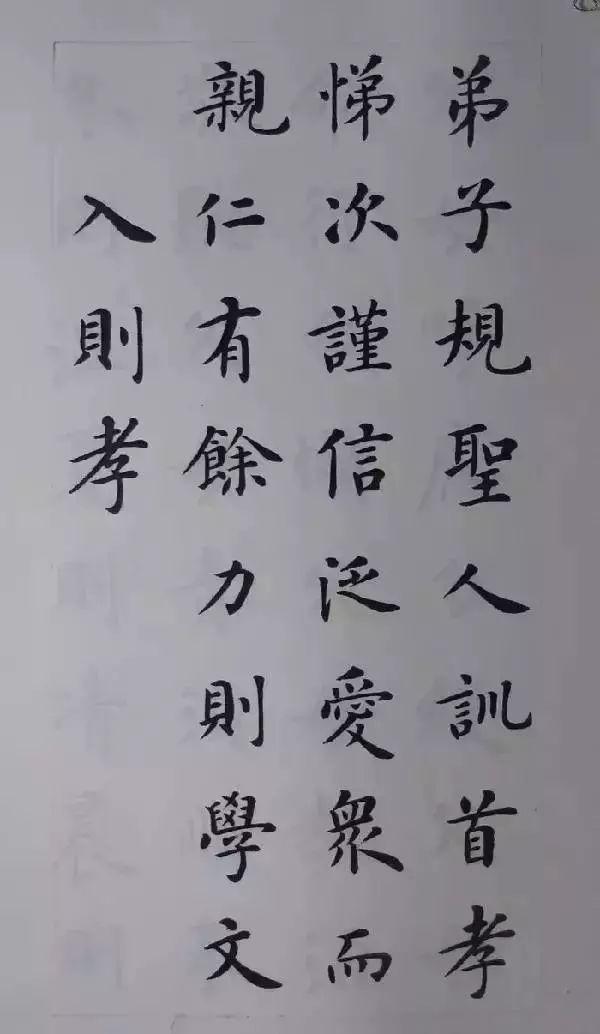 弟子規聖人訓首孝
悌次謹信泛愛眾而
親仁有餘力則學文
入則孝